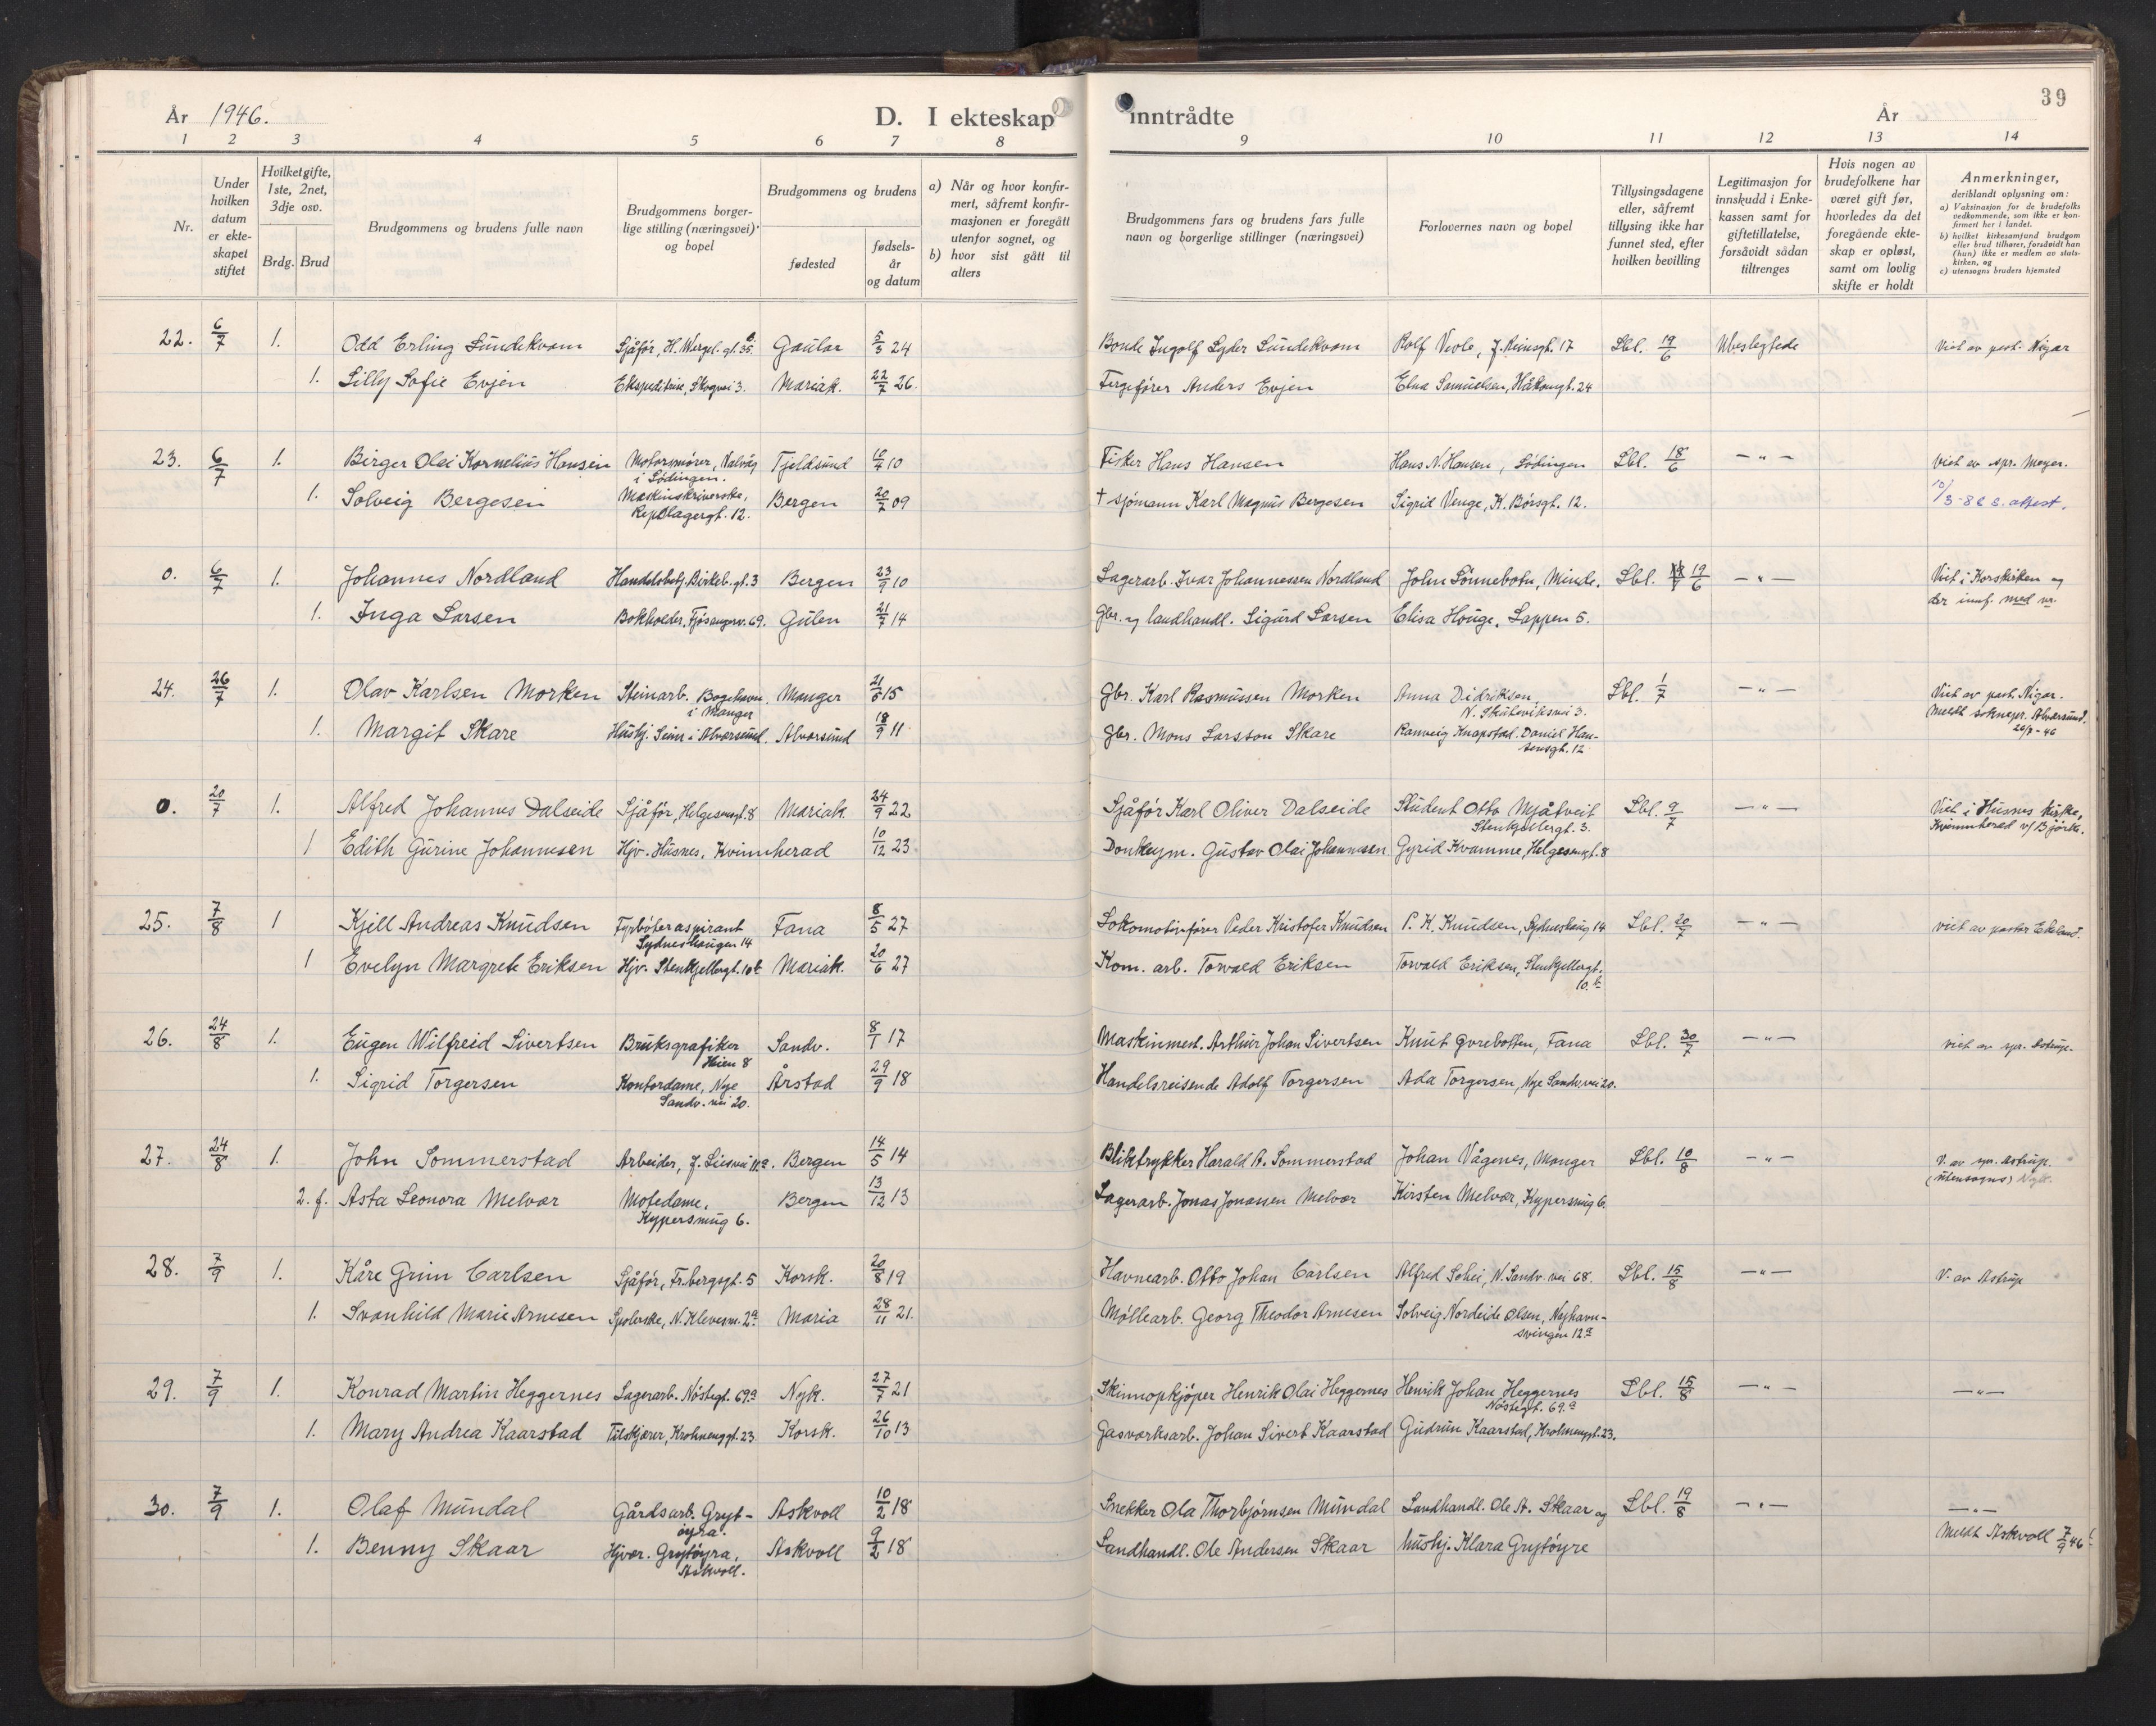 39
År 1946. D. I ekteskap inntrådte År
1 2 3 4 5 6 7 8 9 10 11 12 13 14
Nr.
Under hvilken datum er ekteskapet stiftet
Hvilket gifte, 1ste, 2net, 3dje osv.
Brdg. Brud
Brudgommens og brudens fulle navn
Brudgommens borgerlige stilling (næringsvei) og bopel
Brudgommens og brudens
fødested
fødselsår og datum
a) Når og hvor konfirmert, såfremt konfirmasjonen er foregått utenfor sognet, og
b) hvor sist gått til alters
Brudgommens fars og brudens fars fulle navn og borgerlige stillinger (næringsvei)
Forlovernes navn og bopel
Tillysingsdagene eller, såfremt tillysing ikke har funnet sted, efter hvilken bevilling
Legitimasjon for innskudd i Enkekassen samt for giftetillatelse, forsåvidt sådan tiltrenges
Hvis nogen av brudefolkene har været gift før, hvorledes da det foregående ekteskap er opløst, samt om lovlig skifte er holdt
Anmerkninger,
deriblandt oplysning om:
a) Vaksinasjon for de brudefolks vedkommende, som ikke er konfirmert her i landet.
b) hvilket kirkesamfund brudgom eller brud tilhører, forsåvidt han (hun) ikke er medlem av statskirken, og
c) utensogns bruders hjemsted
22. 6/7 1. Odd Erling Sundekvam Sjåfør, H. Wergel. gt. 35. Gaular 5/3 24 Bonde Ingolf Lyder Sundekvam Rolf 17 Lbl. 19/6 Ubeslegtede Viet av past. Nigar
1. Lilly Sofie Evjen Ekspeditrise, Skogvei 3. Mariak. 22/7 26. Fergefører Anders Evjen Elna Samuelsen, Håkonsgt. 24
23. 6/7 1. Birger Olai Kornelius Hansen Tjeldsund 10 Fisker Hans Hansen Hans N. Hansen, Lødingen Lbl. 18/6 — " — Viet av spr. Meyer.
i Lødingen.
1. Solveig Bergesen Maskinskriverske, Bergen 20/7 09 † sjømann Karl Magnus Bergesen Sigrid Venge, K. Børsgt. 12. attest.
Repslagergt. 12.
0. 6/7 1. Johannes Nordland Handelsbetj. Birkeb. gt. 3 Bergen 23/9 10 Lagerarb. Ivar Johannessen Nordland John Sønnebotn, Minde. Lbl. 19/6 — " — Viet i Korskirken og
der innf. med nr.
1. Inga Larsen Bokholder, Fjøsangerv. 69. Gulen 21/7 14 Gbr. og landhandl. Sigurd Larsen Elisa Hauge, Lappen 5.
24. 26/7 1. Olav Karlsen Morken Steinarb. Manger 21/5 15 Gbr. Karl Rasmussen Morken Anna Didriksen, Lbl. 1/7 — " — Viet av past. Nigar.
i Manger N. Skuteviksvei 3. Meldt sokнepr. Alversund.
1. Margit Skare Hushj. Seim i Alversund. Alversund 18/9 11 Gbr. Mons Larsson Skare Ranveig Knapstad. Daniel Hansensgt. 12
0. 20/7 1. Alfred Johannes Dalseide Sjåfør, Helgesensgt. 8 Mariak. 24/9 22 Sjåfør Karl Oliver Dalseide Student Otto Mjåtveit Lbl. 9/7 — " — Viet i Husnes kirke,
Stenkjellergt. 3. Kvinnherad v/ Bjørke.
1 Edith Gurine Johannesen Hjv. Husnes, Kvinnherad 10/12 23 Donkeym. Gustav Olai Johannesen Gyrid Kvamme, Helgesensgt. 8
25. 7/8 1 Kjell Andreas Knudsen Fyrbøteraspirant Fana 8/5 27 Lokomotivfører Peder Kristofer Knudsen P. K. Knudsen, Sydneshaug 14 Lbl. 20/7 — " — viet av pastor Ekeland.
Sydneshaugen 14
1 Evelyn Margrete Eriksen Hjv. Stenkjellergt. 10b Mariak. 20/6 27 Kom. arb. Torvald Eriksen Torvald Eriksen, Stenkjellergt. 10.b
26. 24/8 1. Eugen Wilfreid Sivertsen Bruksgrafiker Sandv. 8/1 17 Maskinmest. Arthur Johan Sivertsen Knut Gurebotten, Fana Lbl. 30/7 — " — viet av spr. Astrup.
Heien 8
1. Sigrid Torgersen Kontordame, Nye Årstad 29/9 18 Handelsreisende Adolf Torgersen Ada Torgersen, Nye Sandv. vei 20.
Sandv. vei 20.
27. 24/8 1. John Sommerstad Arbeider, J. Liesvei 11.a Bergen 14/5 14 Bliktrykker Harald A. Sommerstad Johan Vågenes, Manger Lbl. 10/8 — " — V. av spr. Astrup.
(utensogns)
2. f. Asta Leonora Melvær Motedame, Bergen 13/12 13 Lagerarb. Jonas Jonassen Melvær Kirsten Melvær, Kypersmug 6.
Kypersmug 6.
28. 7/9 1. Kåre Grim Carlsen Sjåfør, Fr.bergsgt. 5 Korsk. 20/8 19 Havnearb. Otto Johan Carlsen Alfred Sohei, N. Sandv. vei 68. Lbl. 15/8 — " — V. av Astrup
1. Svanhild Marie Arnesen Spolerske, N. Klevesm. 2a Maria 28/11 21. Møllearb. Georg Theodor Arnesen Solveig Nordeide Olsen, Nyhavnsvingen 12a
29. 7/9 1. Konrad Martin Heggernes Lagerarb. Nøstegt. 69a Nyk. 21 Skinnopkjøper Henrik Olai Heggernes Henrik Johan Heggernes Lbl. 15/8 — " — — " —
Nøstegt. 69.a
1. Mary Andrea Kaarstad Tilskjærer, Krohnenggt. 23 Korsk. 26/10 13 Gasverksarb. Johan Sivert Kaarstad Gudrun Kaarstad, Krohnenggt. 23.
30. 7/9 1. Olaf Mundal Gårdsarb. Grytøyra. Askvoll 10/2 18 Snekker Ola Thorbjørnsen Mundal Landhandl. Ole A. Skaar og Lbl. 19/8 — " — — " —
1. Benny Skaar Hjvær. Grytøyra, Askvoll 9/2 18 Landhandl. Ole Andersen Skaar hushj. Klara Grytøyre Meldt Askvoll 7/9 46
Askvoll.